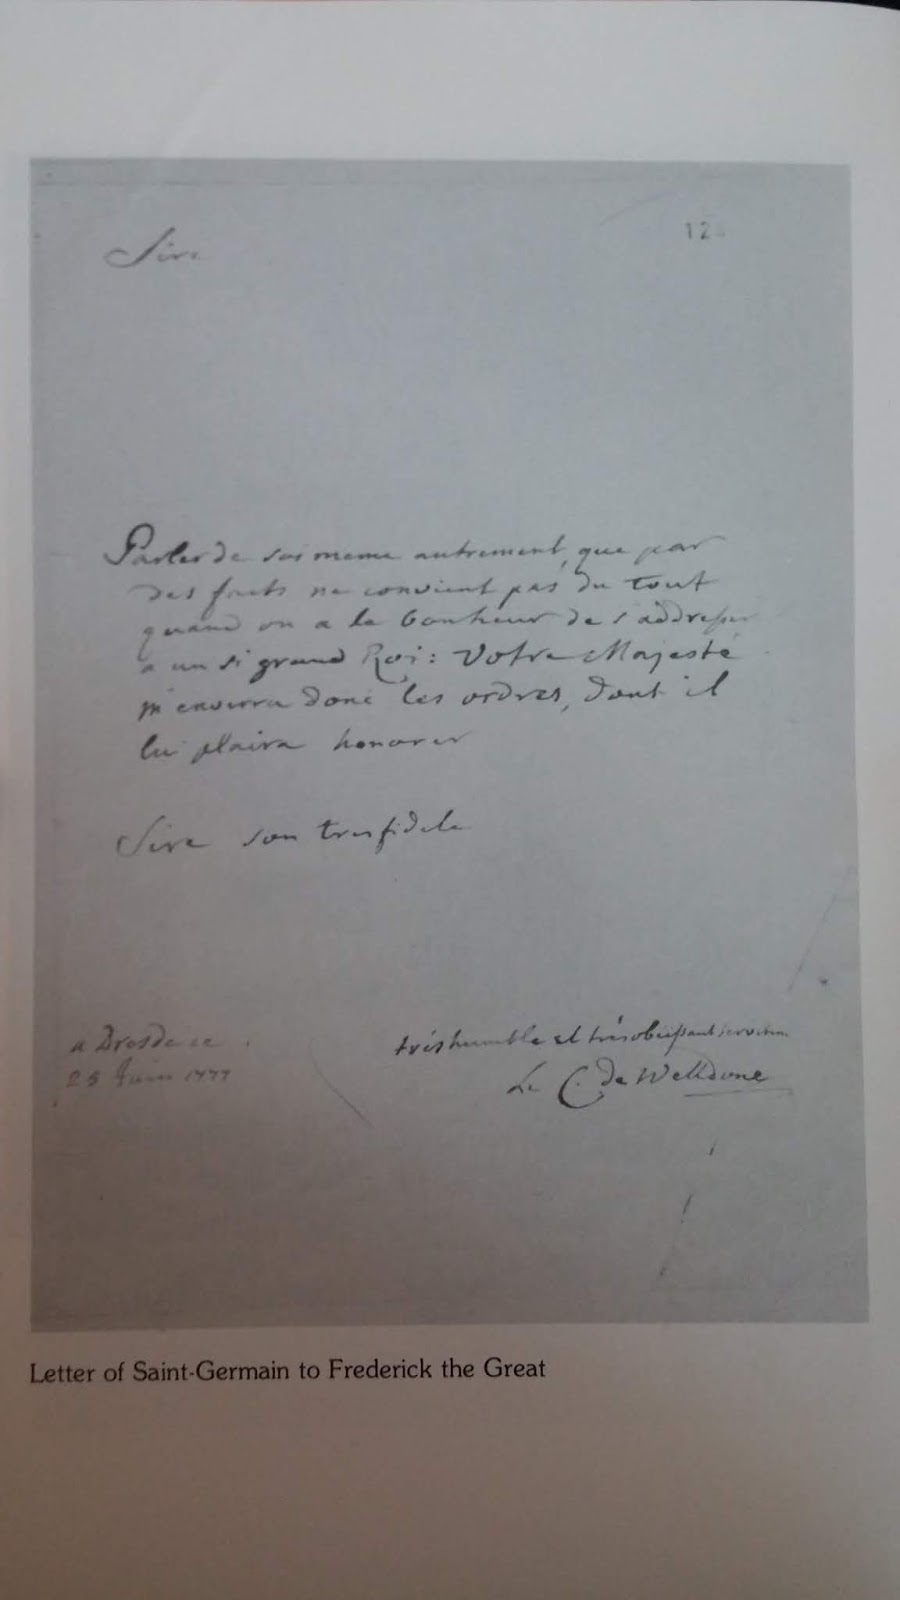 Sire
12
Parler de soi meme autrement, que par
des faits ne convient pas du tout
quand on a le bonheur de s'addresser
a un si grand Roi: Votre Majesté
m'enverra donc les ordres, dont il
lui plaira honorer
Sire son tresfidele
a Dresde ce
25 Juin 1777
tréshumble et trésobeissant serviteur
Le C. de Welldone
Letter of Saint-Germain to Frederick the Great